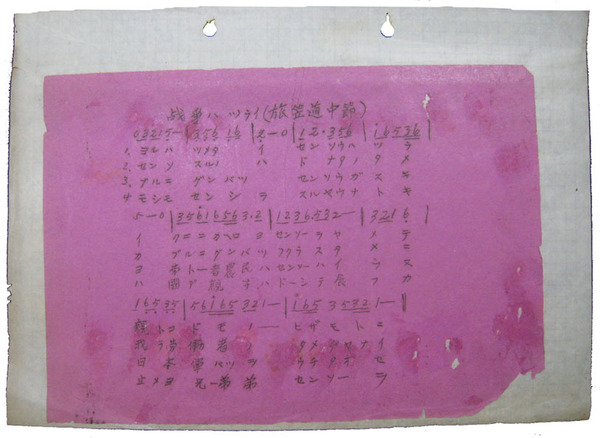 战争ハツライ(旅笠道中節)
0321 5— | 356 16 | 2—0 | 12・356 | i6536 |
1. ヨルハ ツメタ イ センソウハ ツ ラ
2. センソ スルノ ハ ドナタノ タ メ
3. ブルニ グンバツ センソウガ ス キ
4. モシモ センシ ラ スルヤウナ ト キ
5—0 | 3561 656 3・2 | 123653 2— | 321 6 |
イ クニニカヘロヨ センソーヲヤ メ テ
カ ブルニグンバツ フクラスタ メ ニ
ヨ 労トー者農民ハ センソーハイ ラ ヌ
ハ 國デ親ネハドーシテ食 フ カ
165 35 | 56165 321— | i65 3532 1— ‖
親トコ ドモノ— ヒザモトニ
我ラ労働者 タメジャナイ
日本軍バツヲ ウチタオセ
止メヨ兄—弟第 センソーヲ